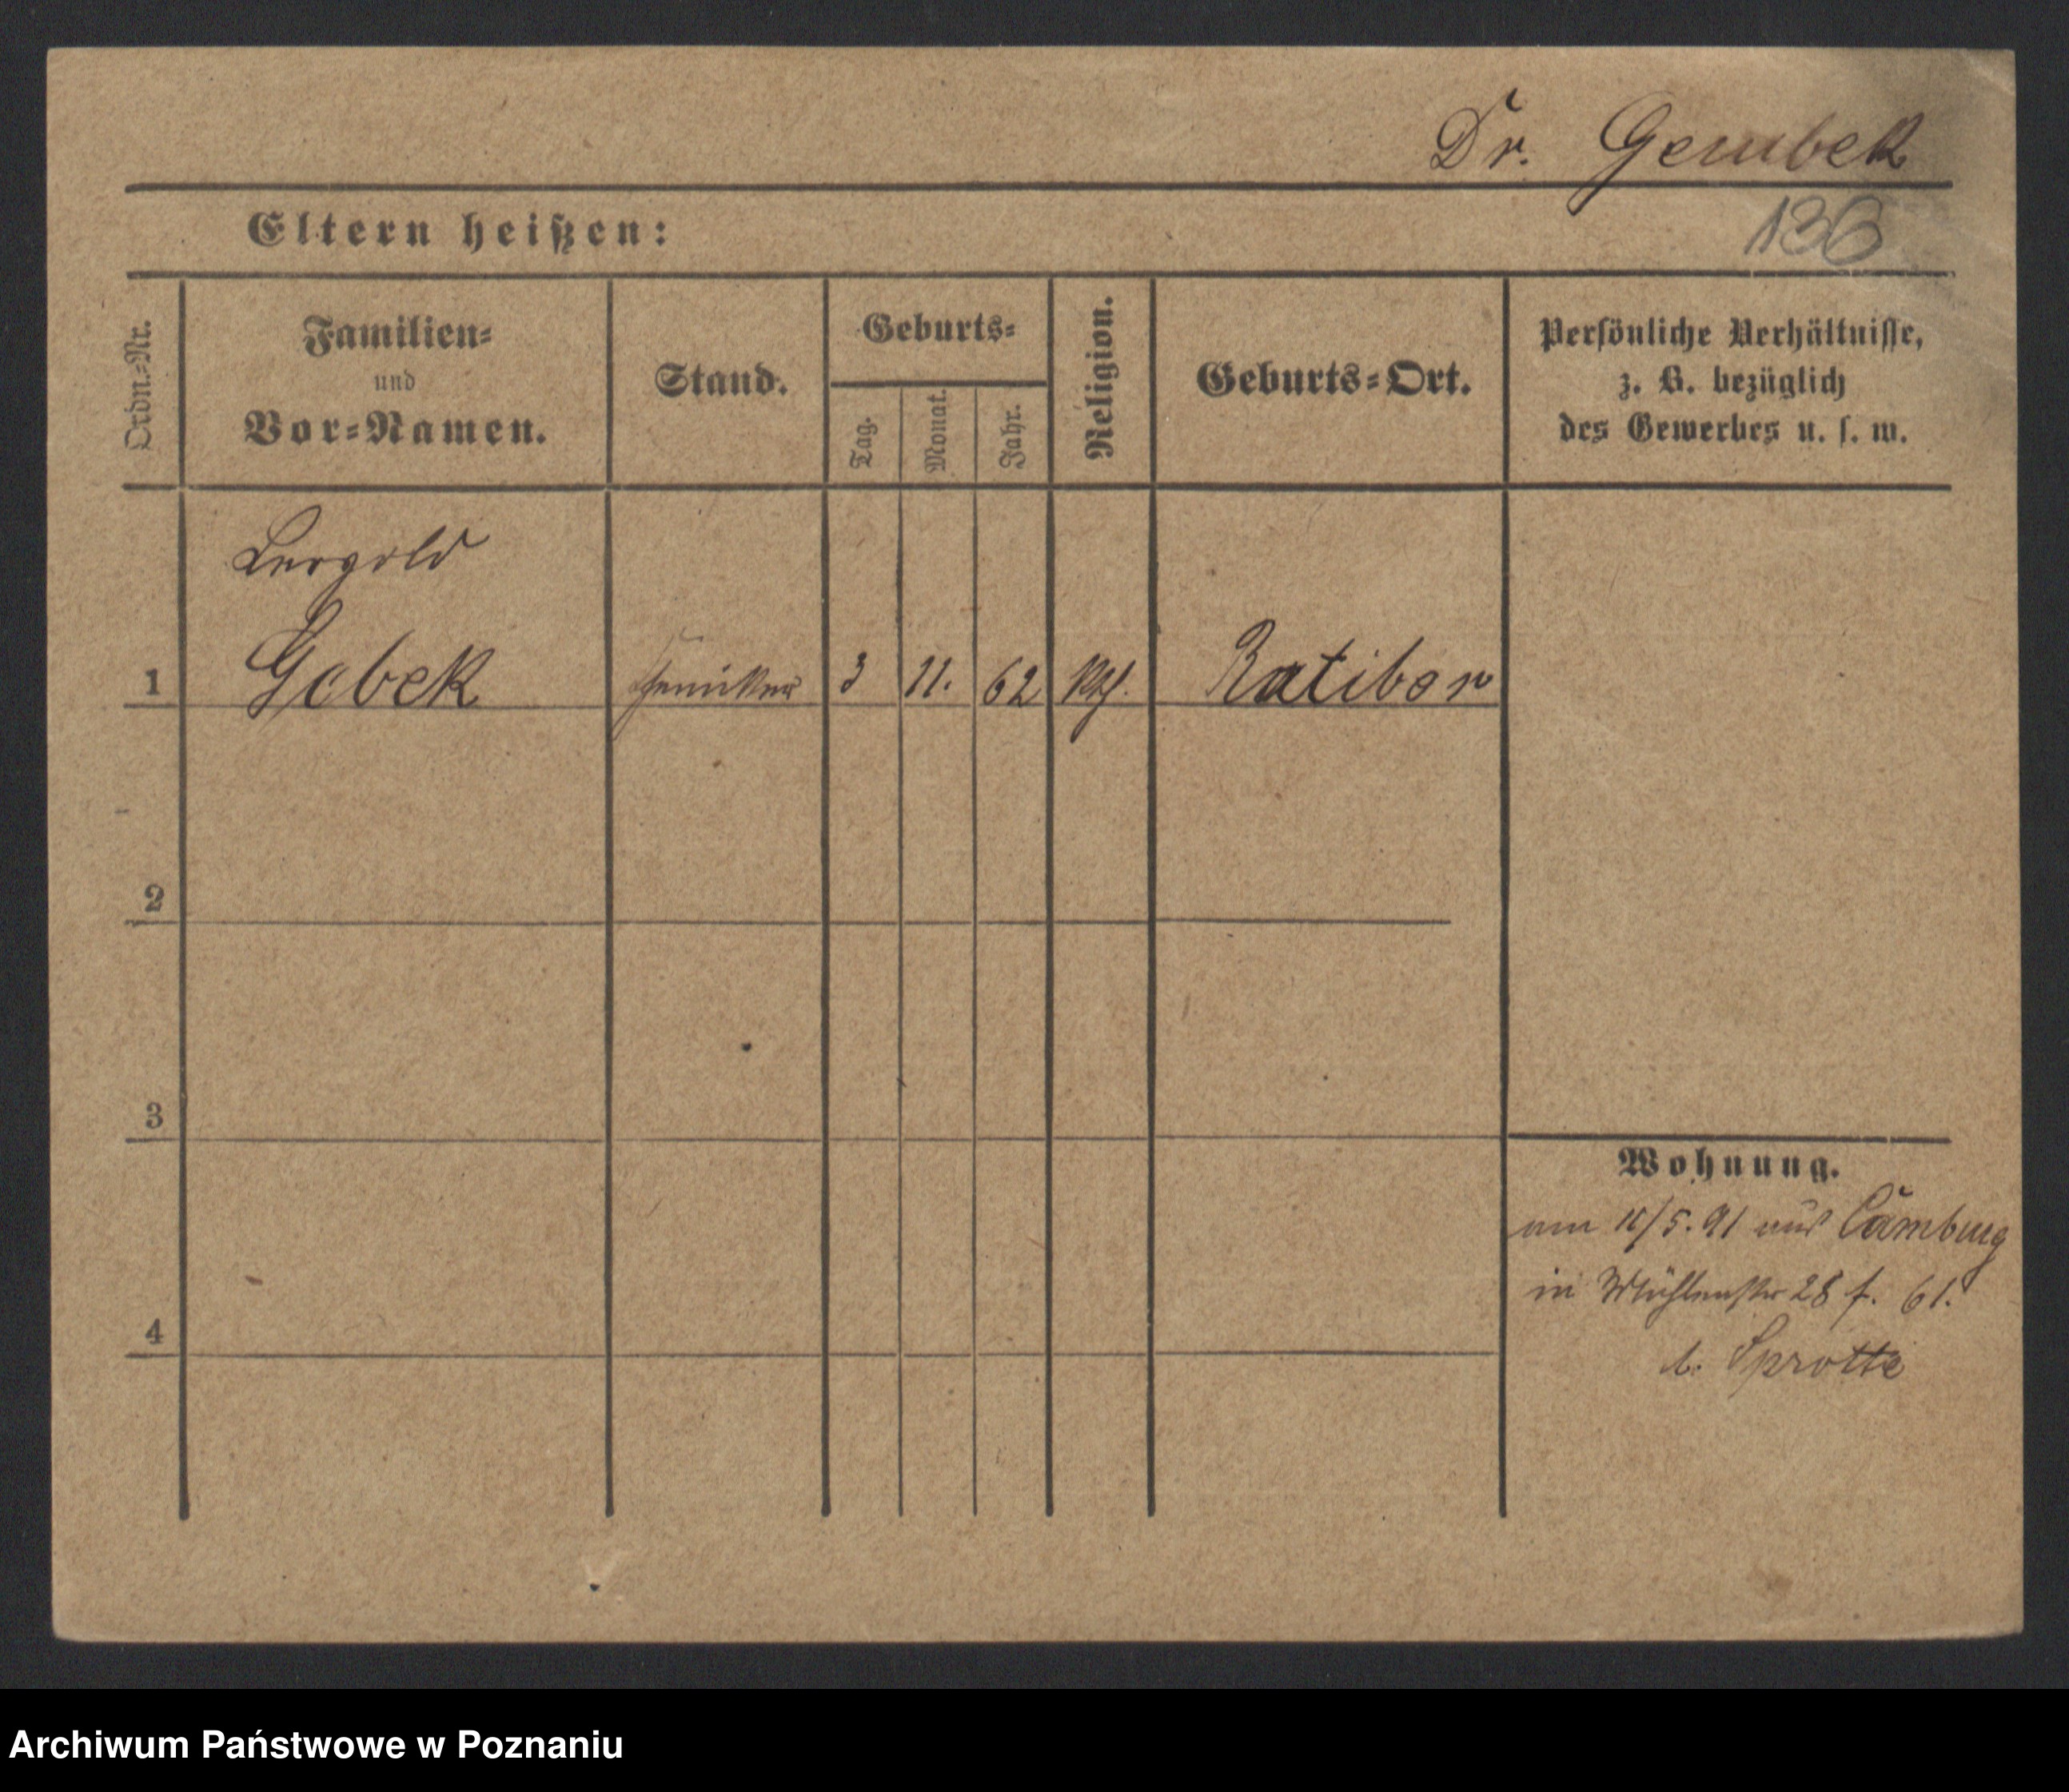 Dr. Gembek
Eltern heißen:
136
Ordn.-Nr.
Familien-
und
Vor-Namen.
Stand.
Geburts-
Tag.
Monat.
Jahr.
Religion.
Geburts-Ort.
Persönliche Verhältnisse,
z. B. bezüglich
des Gewerbes u. s. w.
Leopold
1 Gobek 3 11. 62 kth. Ratibor
2
3
Wohnung.
am /5. 91 aus Camburg
in Mühlenstr 28 f. 61.
b. Sprotte
4
Archiwum Państwowe w Poznaniu